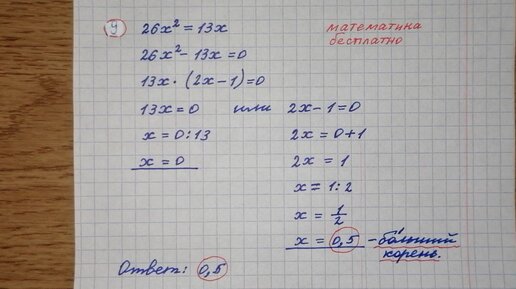 9 26x² = 13x
математика
бесплатно
26x² - 13x = 0
13x · (2x - 1) = 0
13x = 0 или 2x - 1 = 0
x = 0 : 13
2x = 0 + 1
x = 0
2x = 1
x = 1 : 2
x = 1/2
x = 0,5 - больший
корень.
Ответ: 0,5